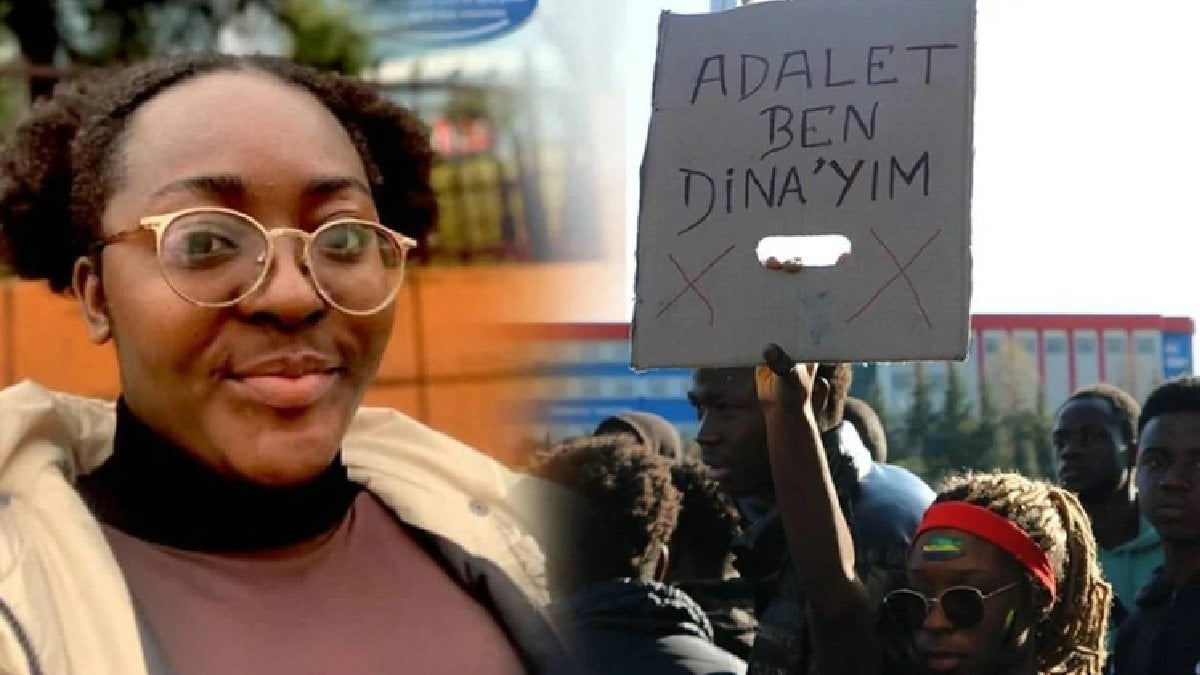 ADALET
BEN
DİNA'YIM